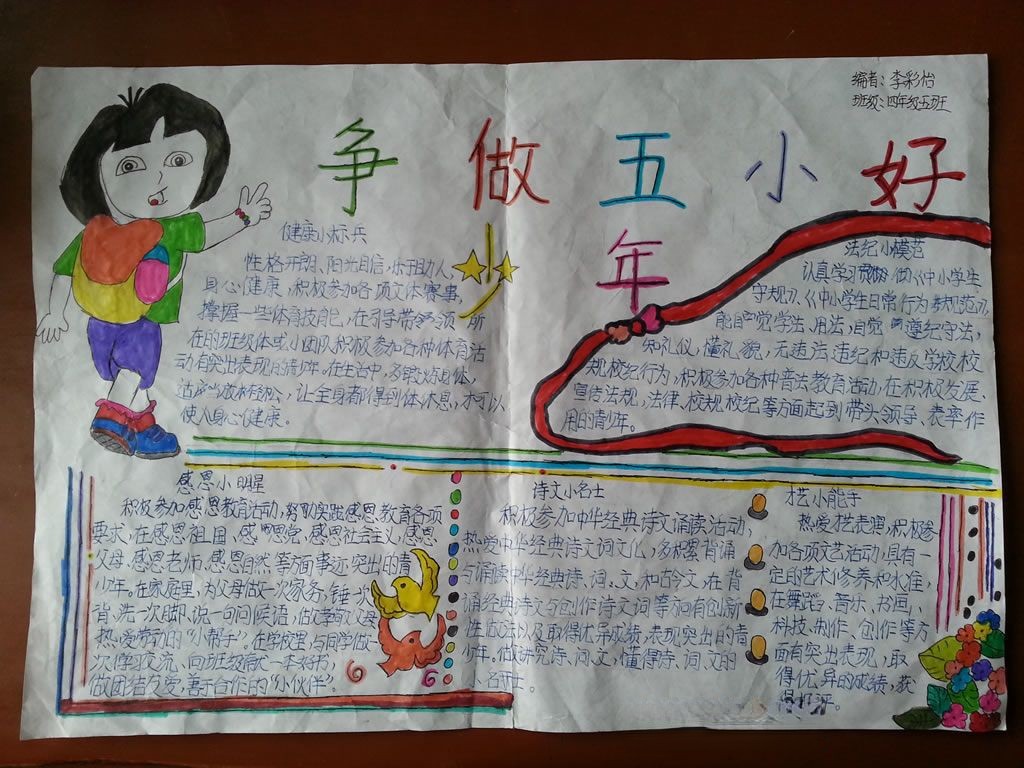 编者:李彩怡
班级:四年级五班
争做五小好
少年
健康小标兵
性格开朗、阳光自信,乐于助人,
身心健康,积极参加各项文体赛事,
掌握一些体育技能,在引导带领所
在的班级体或小团队积极参加各种体育活
动有突出表现的青少年。在生活中,多锻炼身体,
适当放松放松,让全身都得到体休息,才可以
使人身心健康。
法纪小模范
认真学习《中小学生
守规》、《中小学生日常行为规范》,
能自觉学法、用法,自觉遵纪守法,
知礼仪,懂礼貌,无违法违纪和违反学校校
规校纪行为,积极参加各种普法教育活动,在积极发展、
宣传法规,法律、校规校纪等方面起到带头领导、表率作
用的青少年。
感恩小明星
积极参加感恩教育活动,努力实践感恩教育各项
要求,在感恩祖国、感恩党、感恩社会主义,感恩
父母、感恩老师、感恩自然等方面事迹突出的青
少年。在家庭里,为父母做一次家务,锤一次
背,洗一次脚,说一句问候语,做孝敬父母
热爱劳动的“小帮手”。在学校里,与同学做一
次学习交流,向班级献一本好书,
做团结友爱,善于合作的“小伙伴”。
诗文小名士
积极参加中华经典诗文诵读活动,
热爱中华经典诗文词文化,多积累背诵
与诵读中华经典诗、词、文,和古今文,在背
诵经典诗文与创作诗文词等方面有创新
性做法以及取得优异成绩,表现突出的青
少年。做研究诗、词、文,懂得诗、词、文的
小名士。
才艺小能手
热爱艺表照,积极参
加各项文艺活动,具有一
定的艺术修养和水准,
在舞蹈、音乐、书画、
科技、制作、创作等方
面有突出表现,取
得优异的成绩,获
得好评。